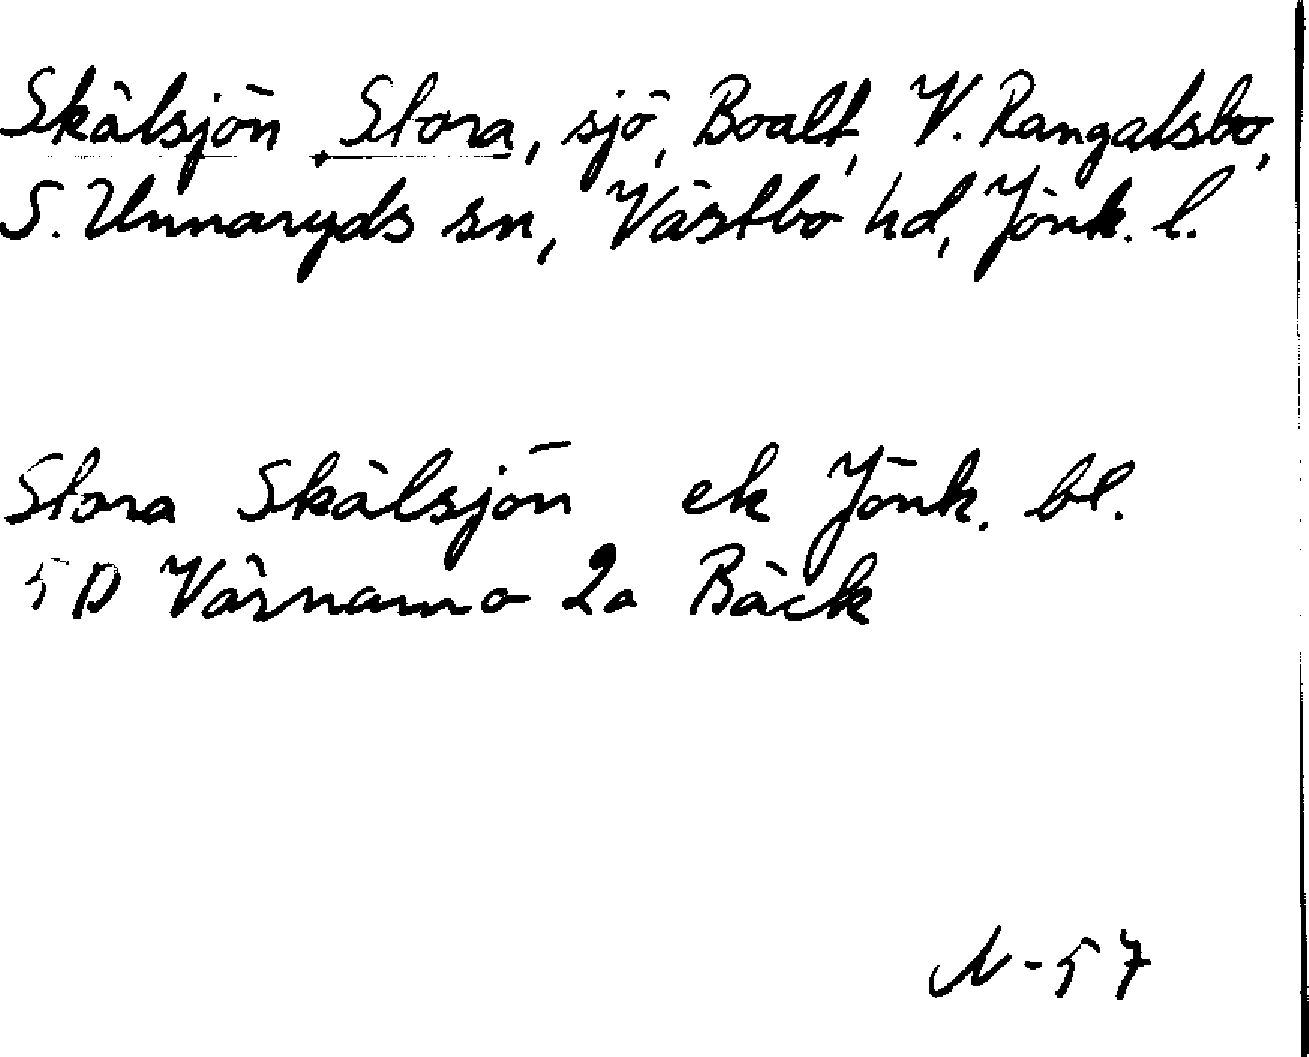 Skälsjön, Stora, sjö, Boalt, V. Rangalsbo,
S. Unnaryds sn, Västbo hd, Jönk. l.
Stora Skälsjön ek Jönk. bl.
5D Värnamo 2a Bäck
N-57